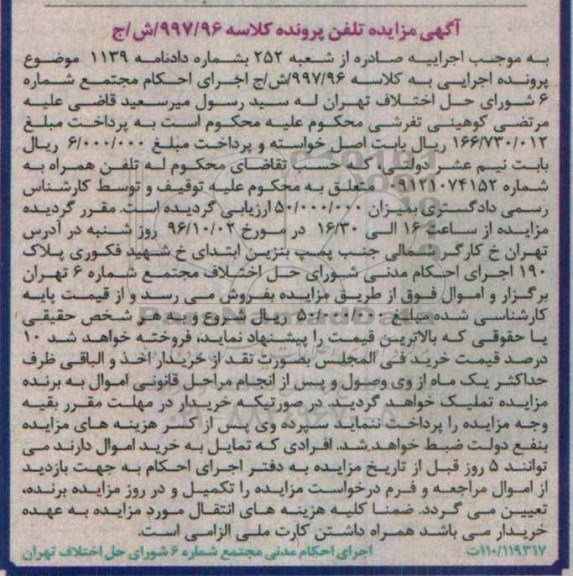 آگهی مزایده تلفن پرونده کلاسه ۹۹۷/۹۶/ش/ج
به موجب اجراییه صادره از شعبه ۲۵۲ بشماره دادنامه ۱۱۳۹ موضوع
پرونده اجرایی به کلاسه ۹۹۷/۹۶/ش/ج اجرای احکام مجتمع شماره
۶ شورای حل اختلاف تهران له سید رسول میرسعید قاضی علیه
مرتضی کوهینی تفرشی محکوم علیه محکوم است به پرداخت مبلغ
۱۶۶/۷۳۰/۰۱۲ ریال بابت اصل خواسته و پرداخت مبلغ ۶/۰۰۰/۰۰۰ ریال
بابت نیم عشر دولتی که حسب تقاضای محکوم له تلفن همراه به
شماره ۰۹۱۲۱۰۷۴۱۵۲ متعلق به محکوم علیه توقیف و توسط کارشناس
رسمی دادگستری بمیزان ۵۰/۰۰۰/۰۰۰ ارزیابی گردیده است. مقرر گردیده
مزایده از ساعت ۱۶ الی ۱۶/۳۰ در مورخ ۹۶/۱۰/۰۲ روز شنبه در آدرس
تهران خ کارگر شمالی جنب پمپ بنزین ابتدای خ شهید فکوری پلاک
۱۹۰ اجرای احکام مدنی شورای حل اختلاف مجتمع شماره ۶ تهران
برگزار و اموال فوق از طریق مزایده بفروش می رسد و از قیمت پایه
کارشناسی شده مبلغ ۵۰/۰۰۰/۰۰۰ ریال شروع و به هر شخص حقیقی
یا حقوقی که بالاترین قیمت را پیشنهاد نماید، فروخته خواهد شد ۱۰
درصد قیمت خرید فی المجلس بصورت نقد از خریدار اخذ و الباقی ظرف
حداکثر یک ماه از وی وصول و پس از انجام مراحل قانونی اموال به برنده
مزایده تملیک خواهد گردید. در صورتیکه خریدار در مهلت مقرر بقیه
وجه مزایده را پرداخت ننماید سپرده وی پس از کسر هزینه های مزایده
بنفع دولت ضبط خواهد شد. افرادی که تمایل به خرید اموال دارند می
توانند ۵ روز قبل از تاریخ مزایده به دفتر اجرای احکام به جهت بازدید
از اموال مراجعه و فرم درخواست مزایده را تکمیل و در روز مزایده برنده،
تعیین می گردد. ضمنا کلیه هزینه های انتقال مورد مزایده به عهده
خریدار می باشد همراه داشتن کارت ملی الزامی است.
۱۱۰/۱۱۹۳۱۷ت اجرای احکام مدنی مجتمع شماره ۶ شورای حل اختلاف تهران
ParsNamadData